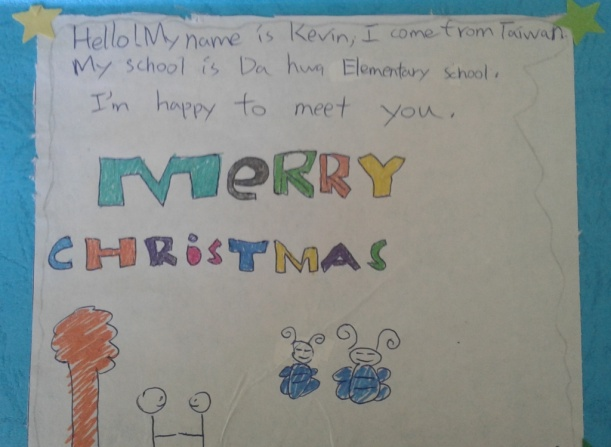 Hello! My name is Kevin, I come from Taiwan.
My school is Da hwa Elementary school.
I'm happy to meet you.
MeRRY
CHRiSTMAS